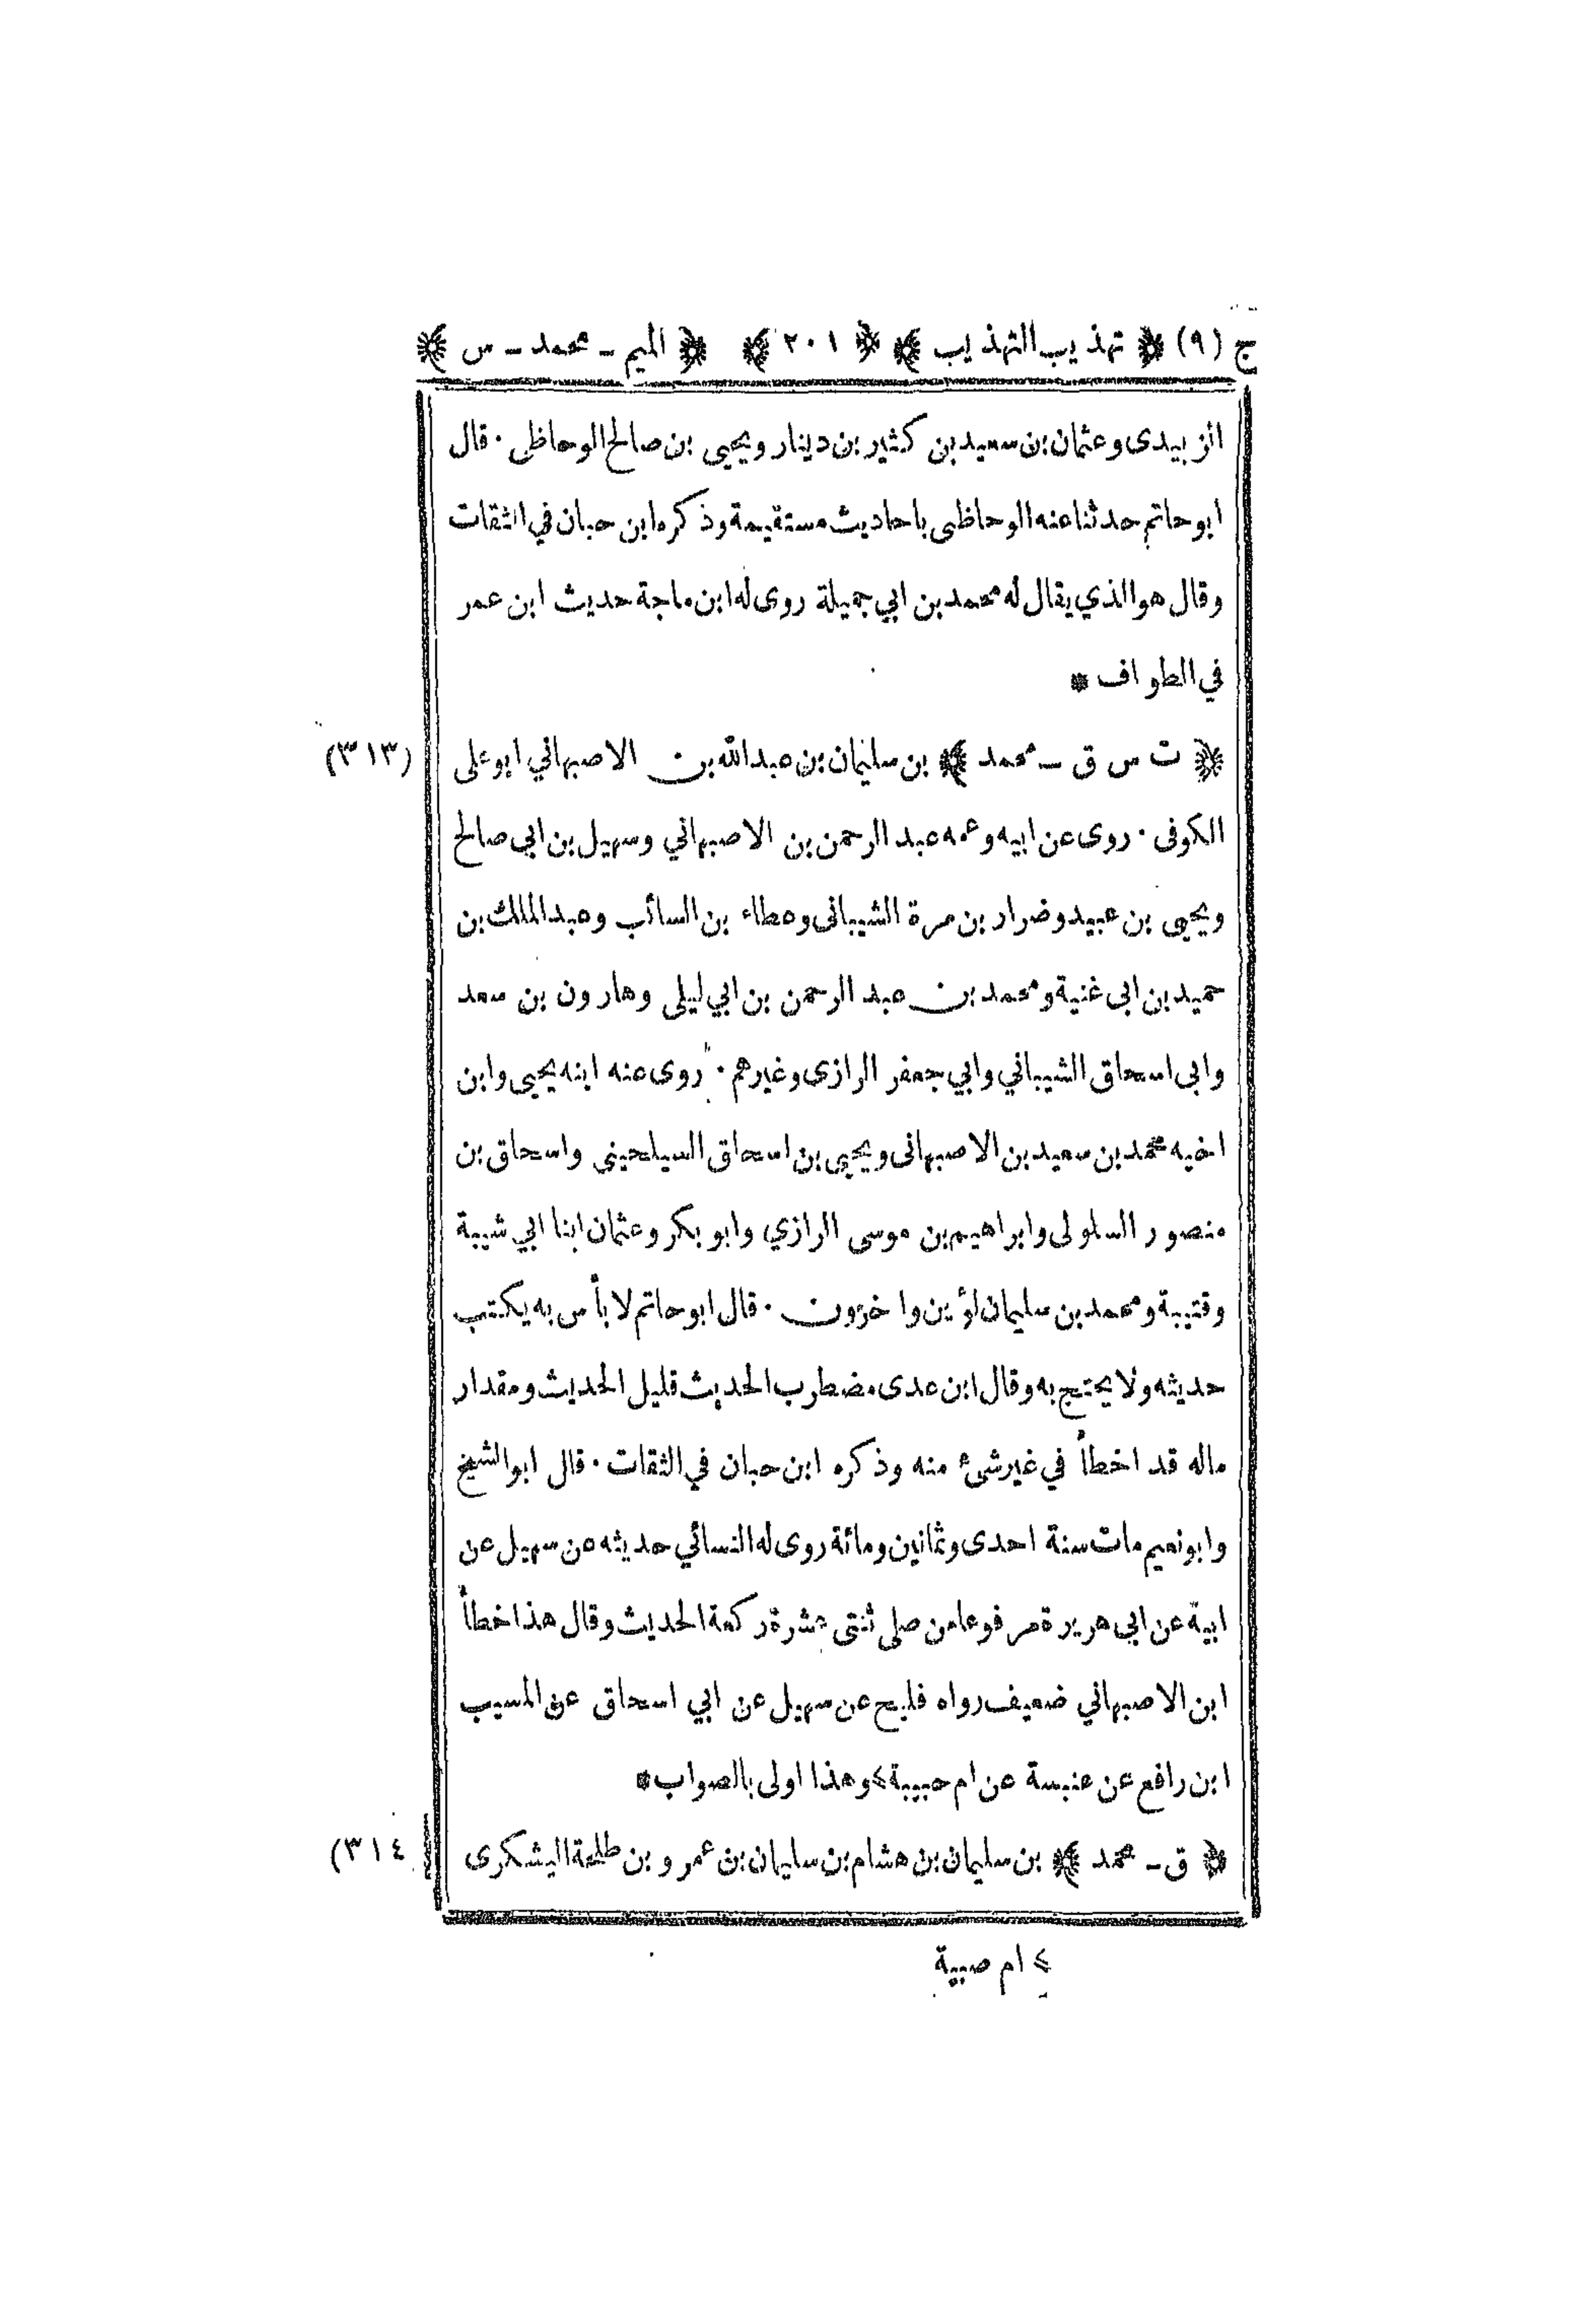 ج (٩) ﴿ تهذيب التهذيب ﴾ ﴿ ٢٠١ ﴾ ﴿ الميم ـ محمد ـ س ﴾
الزبيدى وعثمان بن سعيد بن كثير بن دينار ويحيى بن صالح الوحاظى · قال
ابوحاتم حدثنا عنه الوحاظى باحاديث مستقيمة وذكره ابن حبان في الثقات
وقال هو الذي يقال له محمد بن ابي جميلة روى له ابن ماجة حديث ابن عمر
في الطواف *
﴿ ت س ق ـ محمد ﴾ بن سليمان بن عبد الله بن الاصبهاني ابوعلى (٣١٣)
الكوفى · روى عن ابيه وعمه عبد الرحمن بن الاصبهاني وسهيل بن ابي صالح
ويحيى بن عبيد وضرار بن مرة الشيبانى وعطاء بن السائب وعبد الملك بن
حميد بن ابى غنية ومحمد بن عبد الرحمن بن ابي ليلى وهارون بن سعد
وابى اسحاق الشيباني وابي جعفر الرازى وغيرهم · روى عنه ابنه يحيى وابن
اخيه محمد بن سعيد بن الاصبهانى ويحيى بن اسحاق السيلحينى واسحاق بن
منصور السلولى وابراهيم بن موسى الرازي وابو بكر وعثمان ابنا ابي شيبة
وقتيبة ومحمد بن سليمان لؤين واخرون · قال ابوحاتم لا بأس به يكتب
حديثه ولا يحتج به وقال ابن عدى مضطرب الحديث قليل الحديث ومقدار
ماله قد اخطأ في غير شىء منه وذكره ابن حبان في الثقات · قال ابو الشيخ
وابونعيم مات سنة احدى وثمانين ومائة روى له النسائي حديثه عن سهيل عن
ابيه عن ابي هريرة مرفوعا من صلى ثنتى عشرة ركعة الحديث وقال هذا خطأ
ابن الاصبهاني ضعيف رواه فليح عن سهيل عن ابي اسحاق عن المسيب
ابن رافع عن عنبسة عن ام حبيبة ٤ وهذا اولى بالصواب *
﴿ ق ـ محمد ﴾ بن سليمان بن هشام بن سليمان بن عمرو بن طلحة اليشكرى ٣١٤)
٤ ام صبية